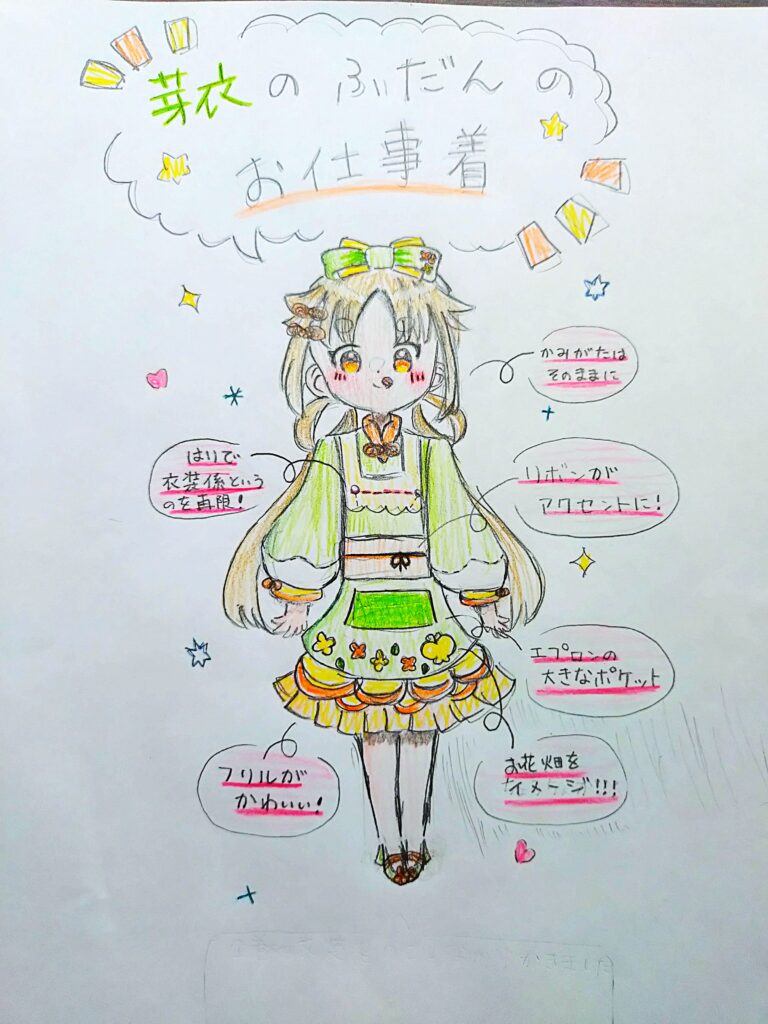 芽衣のふだんの
お仕事着
かみがたは
そのままに
はりで
衣装係という
のを再限!
リボンが
アクセントに!
エプロンの
大きなポケット
お花畑を
イメージ!!!
フリルが
かわいい!